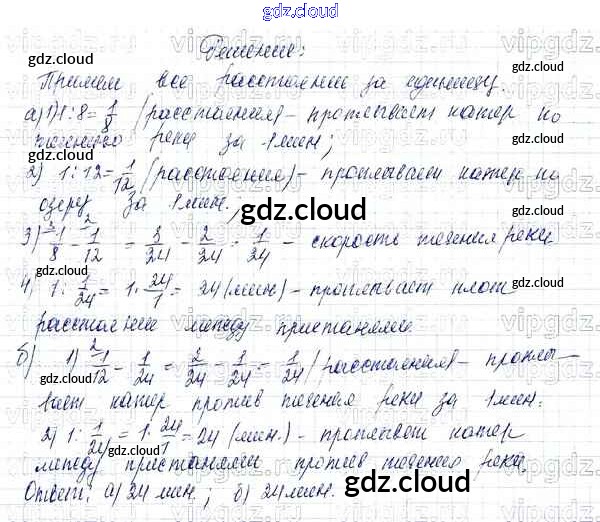 gdz.cloud
gdz.cloud
Решение:
Примем все расстояние за единицу
а) 1) 1 : 8 = 1/8 (расстояния) – проплывает катер по
течению реки за 1 мин;
2) 1 : 12 = 1/12 (расстояния) – проплывает катер по
озеру за 1 мин.;
3) 1/8 - 1/12 = 3/24 - 2/24 = 1/24 – скорость течения реки
4) 1 : 1/24 = 1 · 24/1 = 24 (мин) – проплывает плот
расстояние между пристанями
б) 1) 1/12 - 1/24 = 2/24 - 1/24 = 1/24 (расстояния) – проплы–
вает катер против течения реки за 1 мин.
2) 1 : 1/24 = 1 · 24/1 = 24 (мин.) – проплывет катер
между пристанями против течения реки.
Ответ: а) 24 мин; б) 24 мин.
gdz.cloud